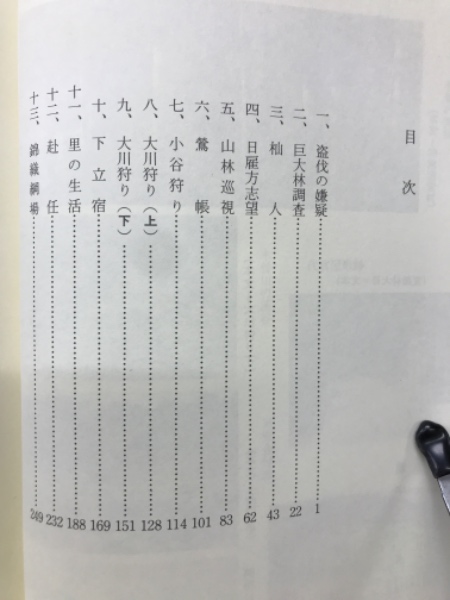 目次
一、盗伐の嫌疑……1
二、巨大林調査……22
三、杣人……43
四、日雇方志望……62
五、山林巡視……83
六、鶯帳……101
七、小谷狩り……114
八、大川狩り（上）……128
九、大川狩り（下）……151
十、下立宿……169
十一、里の生活……188
十二、赴任……232
十三、錦織綱場……249